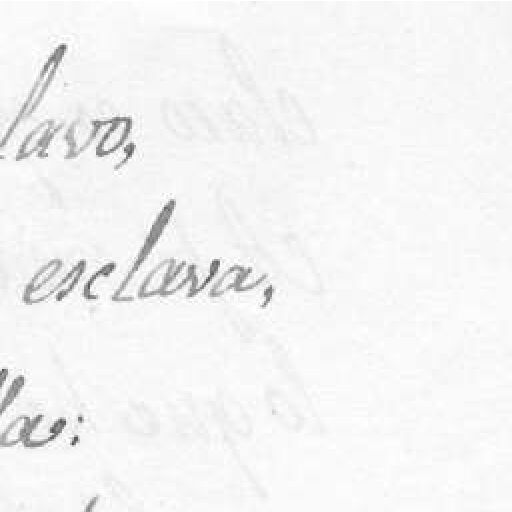 lavo,
esclava,
la: